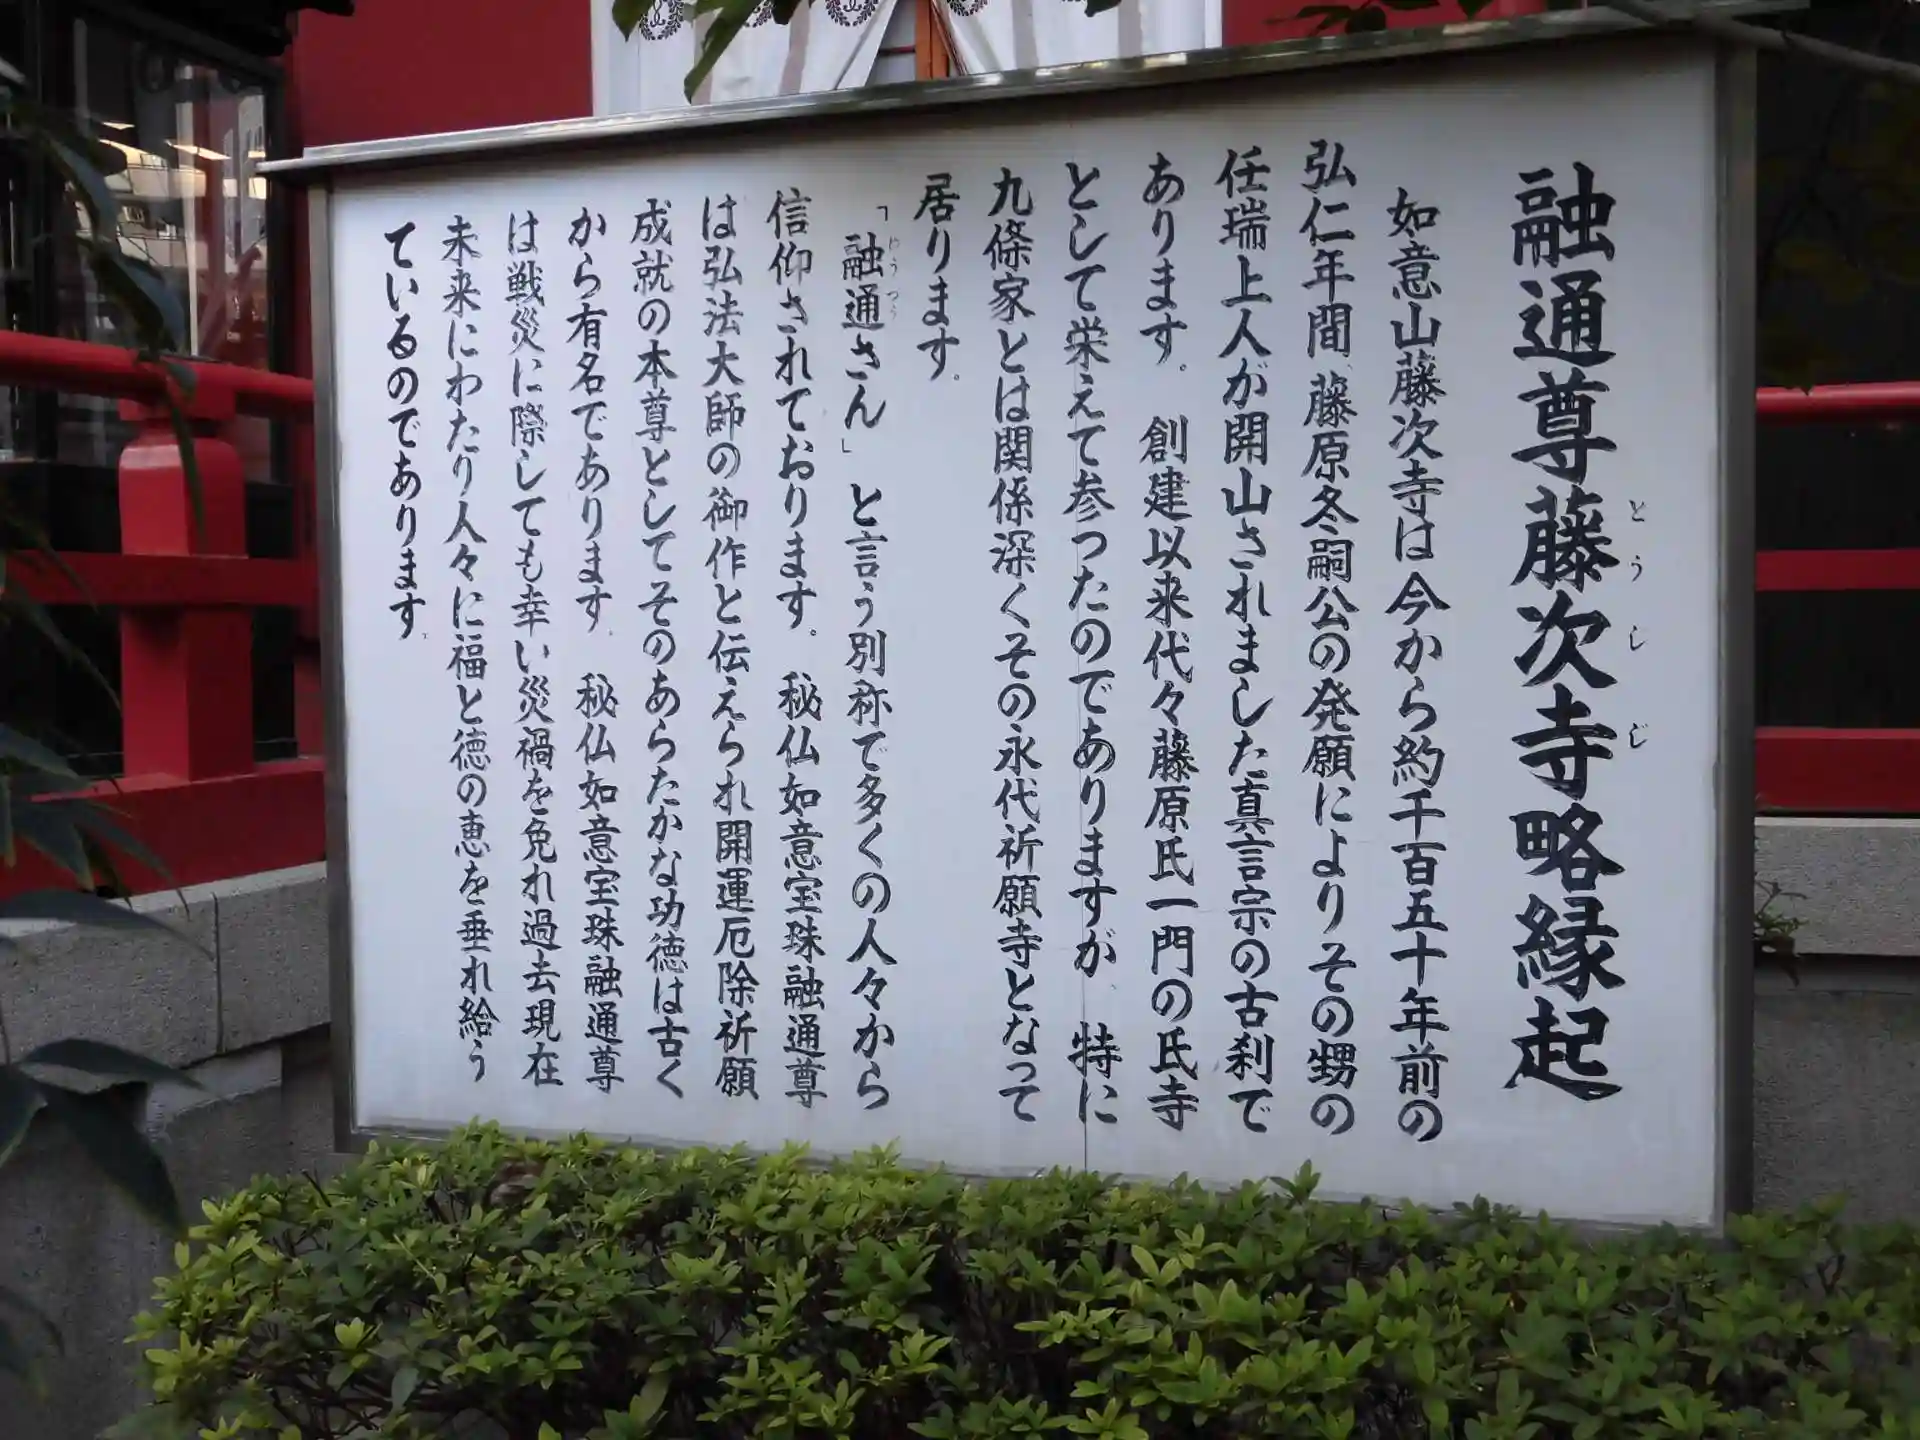 融通尊藤次寺略縁起
とうしじ
如意山藤次寺は今から約千百五十年前の
弘仁年間、藤原冬嗣公の発願によりその甥の
任瑞上人が開山されました真言宗の古刹で
あります。創建以来代々藤原氏一門の氏寺
として栄えて参つたのでありますが、特に
九條家とは関係深くその永代祈願寺となって
居ります。
「融通さん」と言う別称で多くの人々から
ゆうづう
信仰されております。秘仏如意宝珠融通尊
は弘法大師の御作と伝えられ開運厄除祈願
成就の本尊としてそのあらたかな功徳は古く
から有名であります。秘仏如意宝珠融通尊
は戦災に際しても幸い災禍を免れ過去現在
未来にわたり人々に福と徳の恵を垂れ給う
ているのであります。